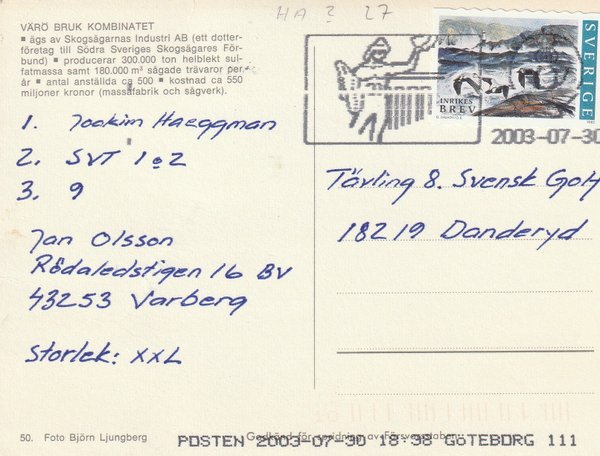 HA ? 27
VÄRÖ BRUK KOMBINATET
▪ ägs av Skogsägarnas Industri AB (ett dotter-
företag till Södra Sveriges Skogsägares För-
bund) ▪ producerar 300.000 ton helblekt sul-
fatmassa samt 180.000 m³ sågade trävaror per
år ▪ antal anställda ca 500 ▪ kostnad ca 550
miljoner kronor (massafabrik och sågverk).
1. Joakim Haeggman
2. SVT 1 o 2
3. 9
Jan Olsson
Rödaledstigen 16 BV
43253 Varberg
Storlek: XXL
INRIKES
BREV
SVERIGE
2003-07-30
Tävling 8. Svensk Golf
18219 Danderyd
50. Foto Björn Ljungberg
Godkänd för spridning av Försvarsstaben.
POSTEN 2003-07-30 18:38 GöTEBORG 111